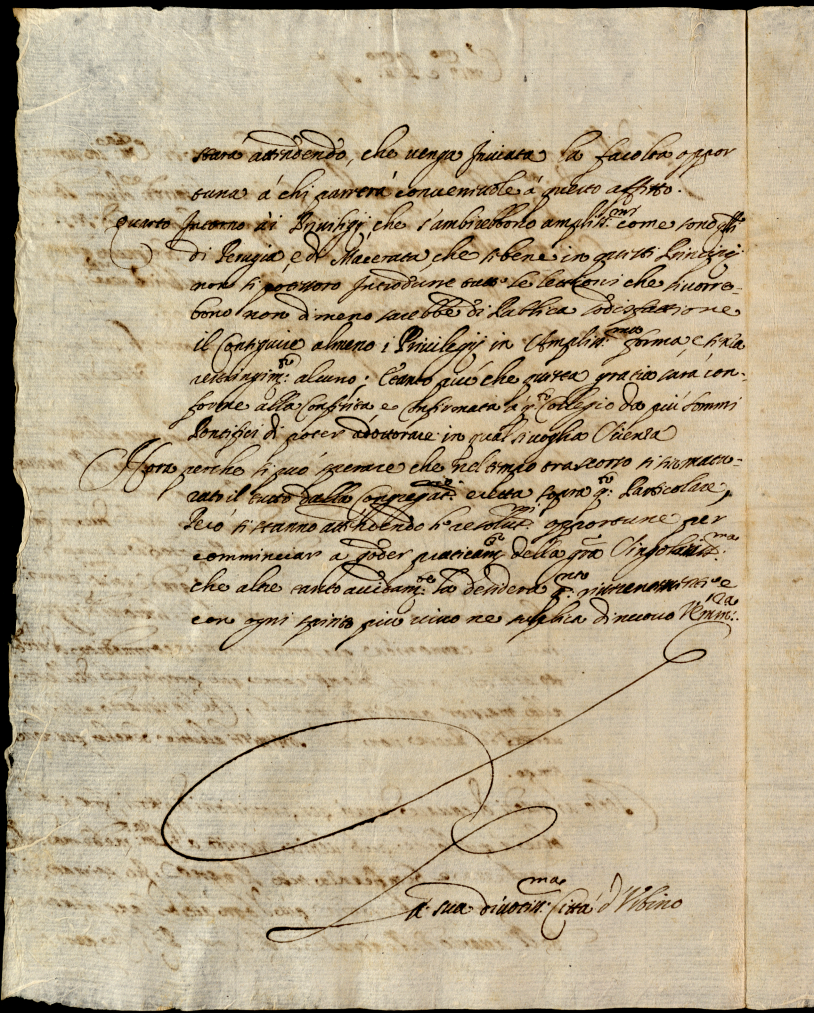 starà attendendo, che venga Inviata la facoltà oppor
tuna à chi parrerà convenevole à questo affetto.
Quarto Intorno ài Privilegij, che s'ambirebbono amplis.mi come sono q.lli
di Perugia, e di Macerata, che se bene in questi Principij
non si potessero Introdurre tutte le lettioni che si vorre=
bono non dimeno sarebbe di Publica sodisfattione
il Conseguire almeno i Privilegij in Amplis.ma forma, e senza
restringim.to alcuno; E tanto più che questa gratia sarà con=
forme alla Conferita e Confirmata à q.to Collegio da più Sommi
Pontefici di poter adottorare in qual si voglia Scienza
Hora perche si può sperare che nel tempo trascorso si sia matu=
rato il tutto dalla Congregat.ne eretta sopra q.to Particolare,
Però si stanno attendendo le resolut.ni opportune per
comminciar a goder praticam.te della gra Singolariss.ma
che altre tanto avidam.te la desidera q.to
con ogni spirito più vivo ne supplica di nuovo V Emin.za
La sua divotiss.ma Città d'Urbino